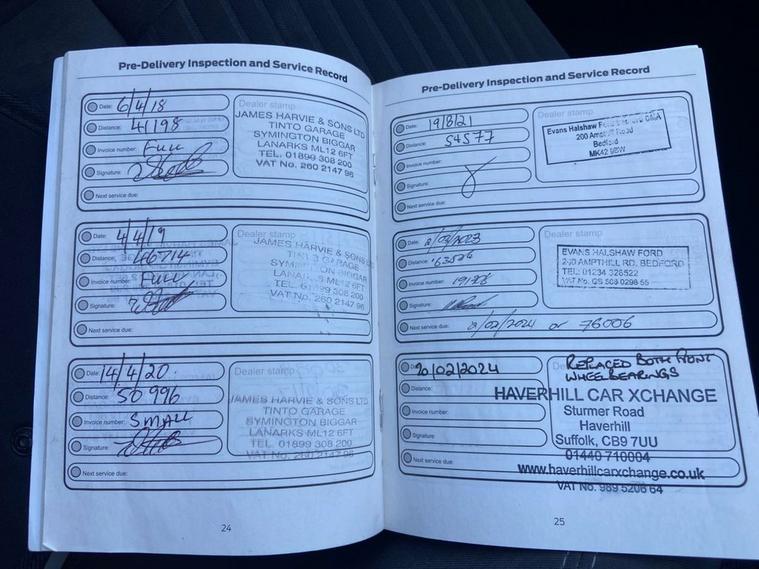 Pre-Delivery Inspection and Service Record
Date: 6/4/18
Distance: 41198
Invoice number: FULL
Signature:
Next service due:
Dealer stamp
JAMES HARVIE & SONS LTD
TINTO GARAGE
SYMINGTON BIGGAR
LANARKS ML12 6FT
TEL. 01899 308 200
VAT No. 260 2147 96
Date: 4/4/19
Distance: 46714
Invoice number: FULL
Signature:
Next service due:
Dealer stamp
JAMES HARVIE & SONS LTD
TINTO GARAGE
SYMINGTON BIGGAR
LANARKS ML12 6FT
TEL. 01899 308 200
VAT No. 260 2147 96
Date: 14/4/20.
Distance: 50996
Invoice number: SMALL
Signature:
Next service due:
Dealer stamp
JAMES HARVIE & SONS LTD
TINTO GARAGE
SYMINGTON BIGGAR
LANARKS ML12 6FT
TEL. 01899 308 200
VAT No. 260 2147 96
24
Pre-Delivery Inspection and Service Record
Date: 19/8/21
Distance: 54577
Invoice number:
Signature:
Next service due:
Dealer stamp
Evans Halshaw Ford
200 Ampthill Road
Bedford
MK42 9BW
Date: 2/02/2023
Distance: 63506
Invoice number:
Signature:
Next service due: 2/02/2024 or 76006
Dealer stamp
EVANS HALSHAW FORD
200 AMPTHILL RD, BEDFORD
TEL: 01234 328522
VAT No. GS 508 0298 55
Date: 20/02/2024
Distance:
Invoice number:
Signature:
Next service due:
Dealer stamp
REPLACED BOTH FRONT
WHEELBEARINGS
HAVERHILL CAR XCHANGE
Sturmer Road
Haverhill
Suffolk, CB9 7UU
01440 710004
www.haverhillcarxchange.co.uk
VAT No. 989 5206 64
25